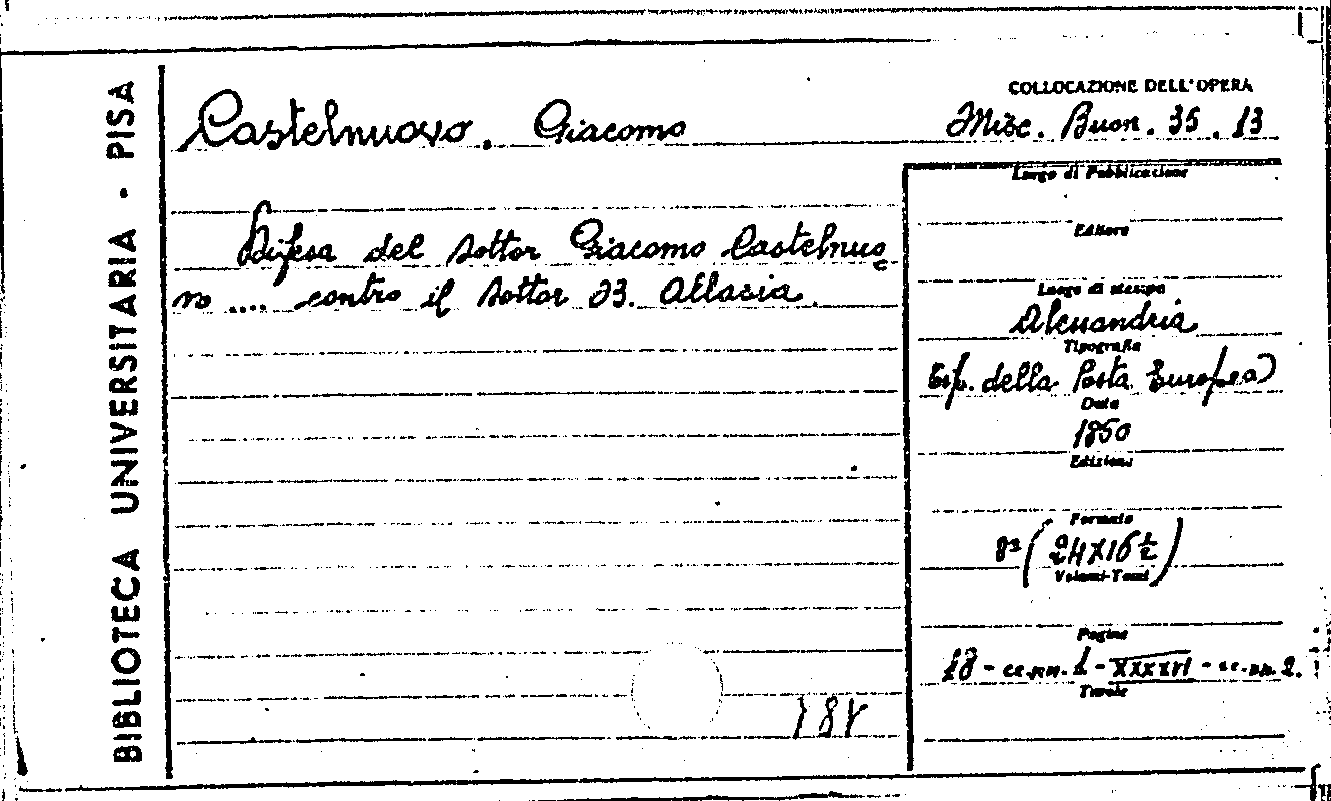 BIBLIOTECA UNIVERSITARIA · PISA
Castelnuovo, Giacomo
Difesa del dottor Giacomo Castelnuo
vo .... contro il dottor B. Allasia.
COLLOCAZIONE DELL'OPERA
Misc. Buon. 35.13
Luogo di Pubblicazione
Editore
Luogo di stampa
Alessandria
Tipografia
Tip. della Posta Europea
Data
1850
Edizioni
Formato
8º (24X16½)
Volumi-Tomi
Pagine
18 - cc.nn. 1 - XXXXVI - cc.nn. 2.
Tavole